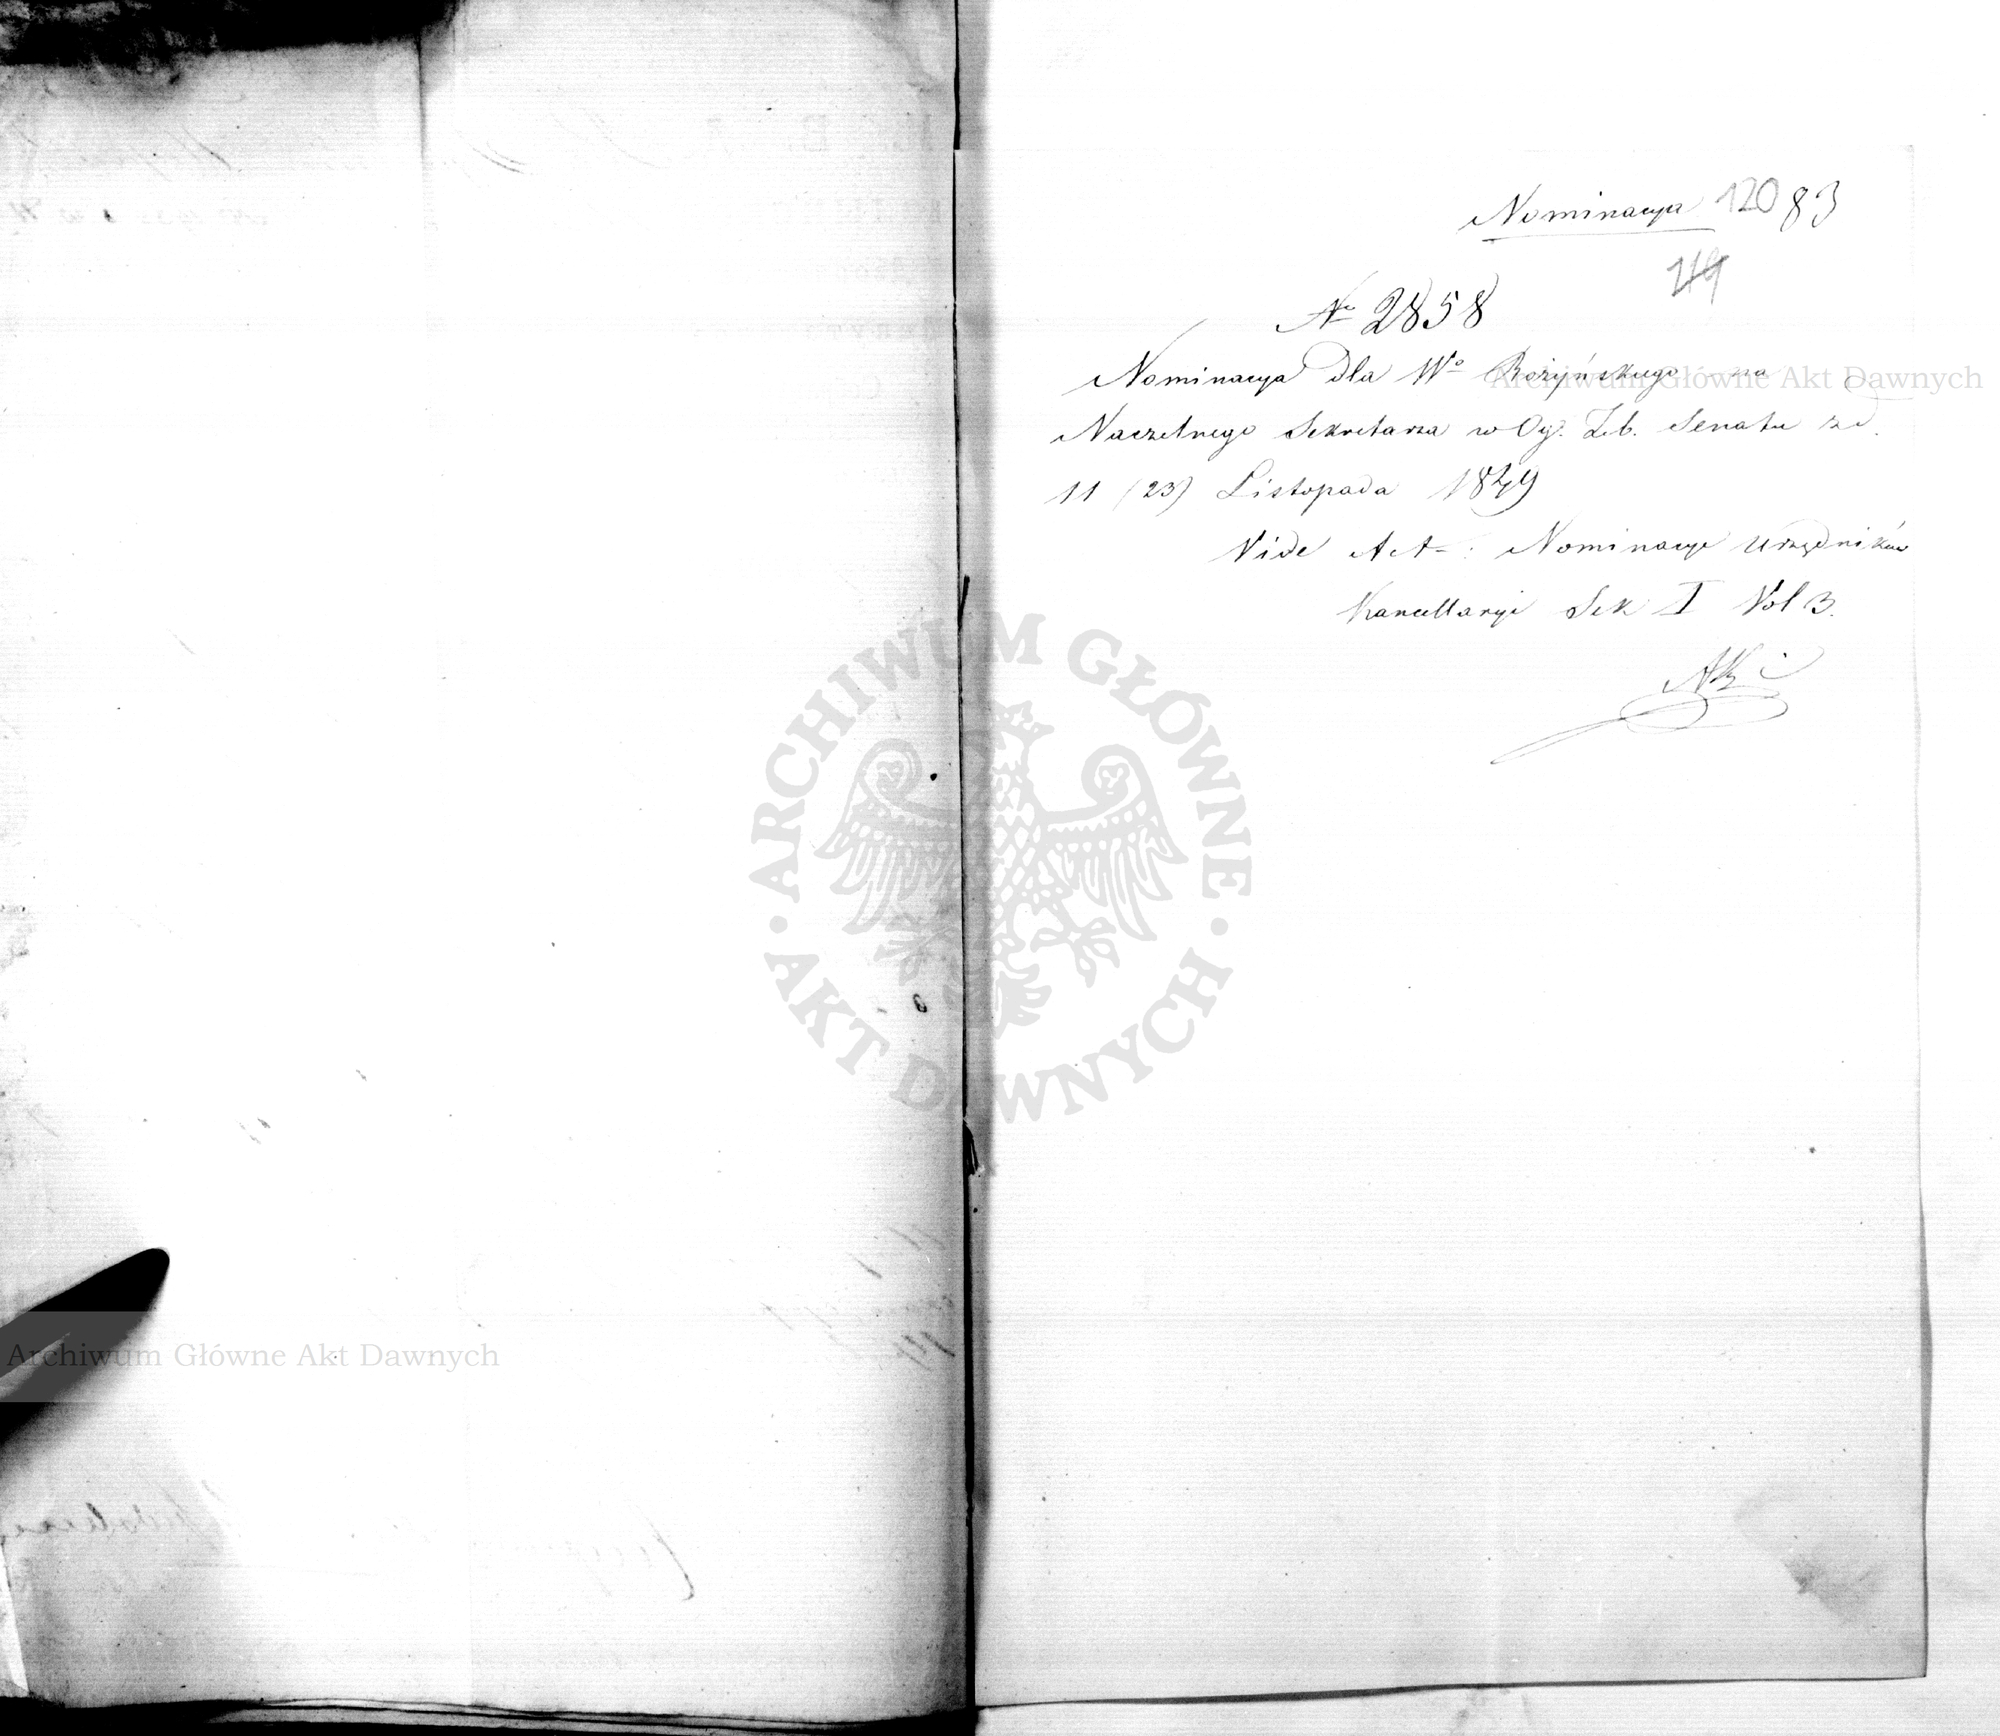 Nominacya 120 83
119
No 2858
Nominacya dla Wo Rożyńskiego na
Naczelnego Sekretarza w Og. Zeb. Senatu z d.
11 (23) Listopada 1849
Vide Act: Nominacye Urzędników
Kancellaryi Sek I Vol 3.
Archiwum Główne Akt Dawnych
ARCHIWUM GŁÓWNE AKT DAWNYCH
Archiwum Główne Akt Dawnych